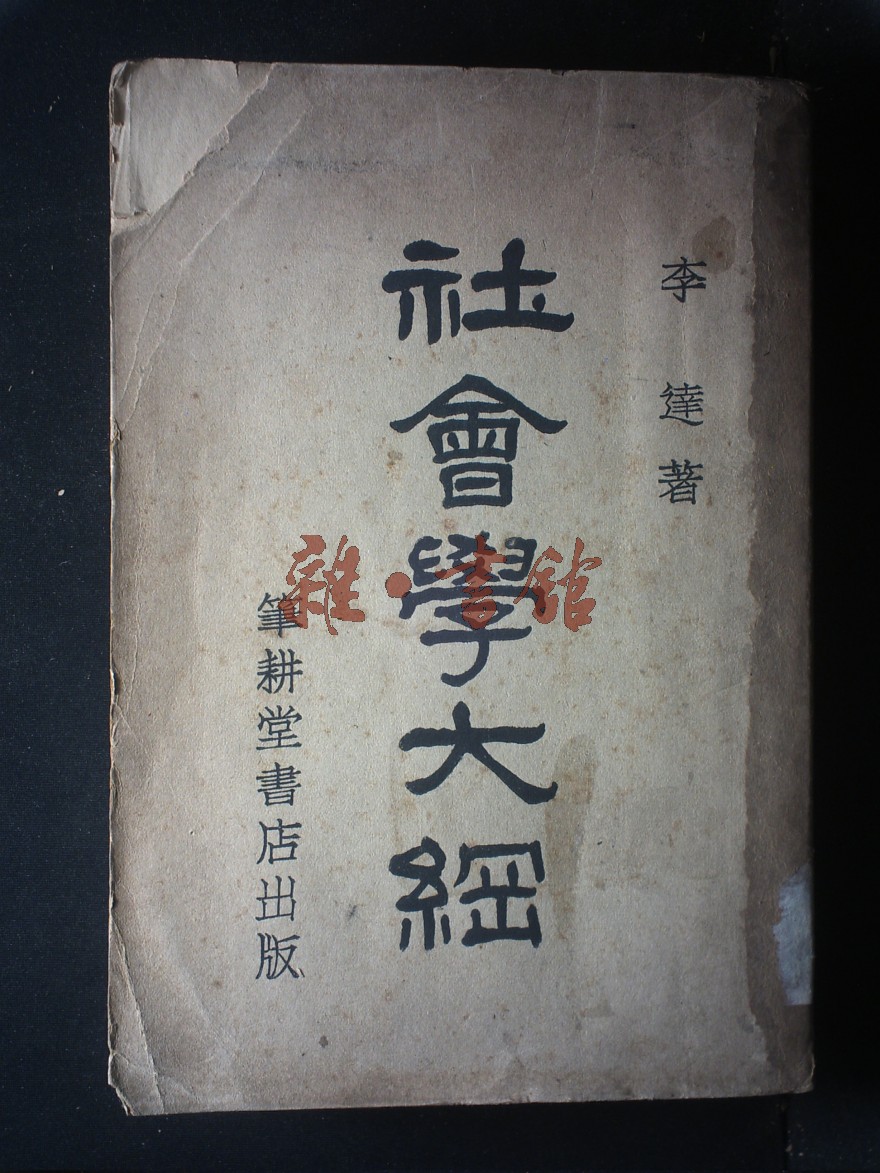 李達著
社會學大綱
筆耕堂書店出版
雜·書館